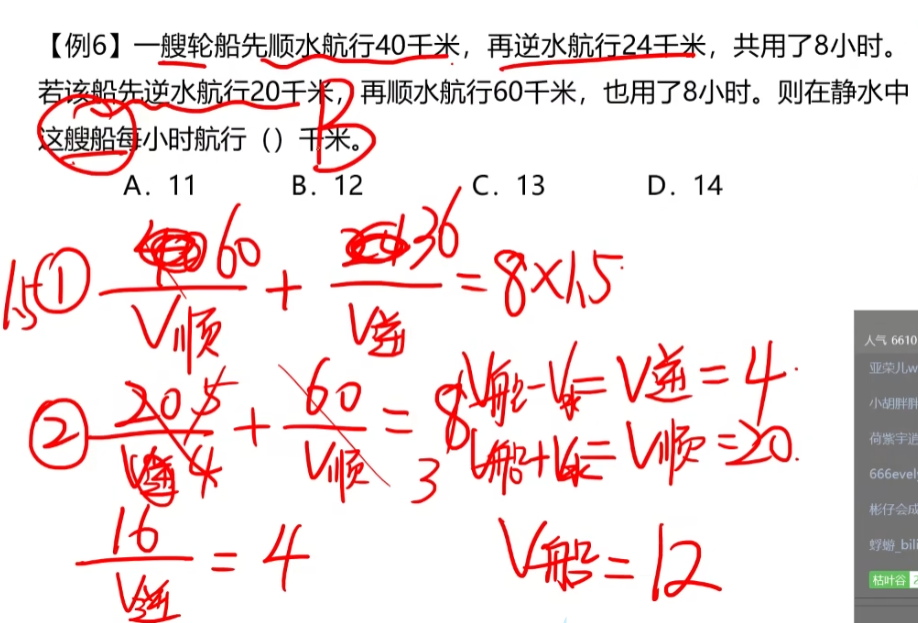 【例6】一艘轮船先顺水航行40千米，再逆水航行24千米，共用了8小时。
若该船先逆水航行20千米，再顺水航行60千米，也用了8小时。则在静水中
这艘船每小时航行（）千米。
B
A．11 B．12 C．13 D．14
1.5① 60/V顺 + 36/V逆 = 8×1.5
② 20 5/V逆 4 + 60/V顺 3 = 8
V船-V水=V逆=4
V船+V水=V顺=20
16/V逆 = 4
V船=12
人气 6610
亚荣儿w
小胡胖胖
荷紫宇逍
666evel
彬仔会成
蜉蝣_bili
枯叶谷 2